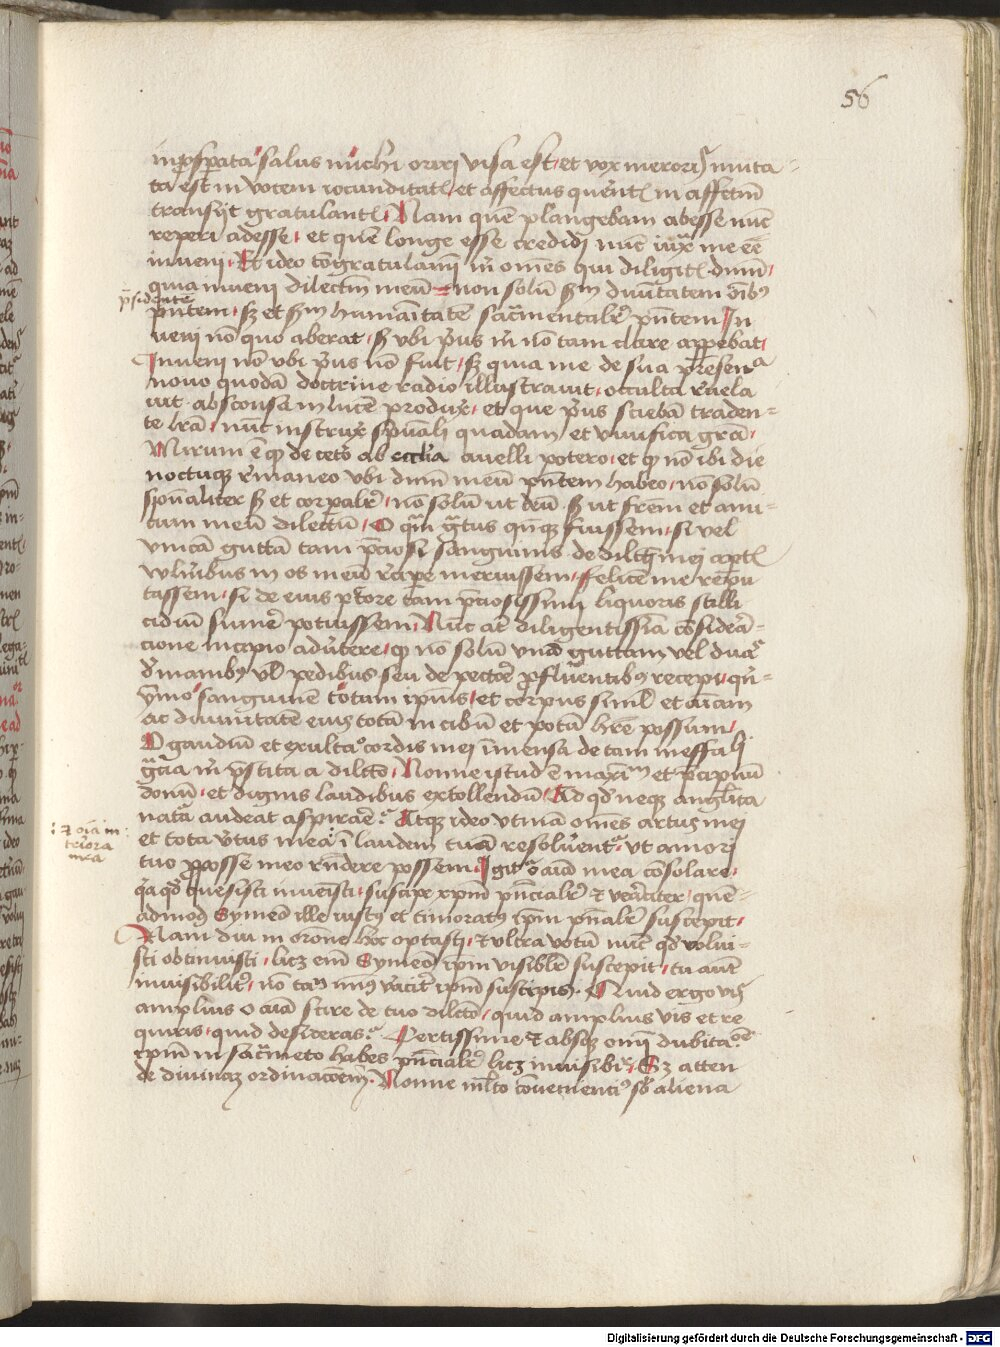 56
insperata salus michi oriri visa est et vox meroris muta
ta est in vocem iocunditatis et affectus querentis in affectum
transijt gratulantis Nam quem plangebam abesse nunc
reperi adesse et quem longe esse credidi nunc iuxta me eē
inveni Et ideo congratulamini mihi omnes qui diligitis dominum
quia inveni dilectum meum non solum scdm divinitatem oībus
presidentem
pntem sed et scdm humanitatem sacramentaliter pntem In
veni nō quo aberat sed ubi prius mihi non tam clare apparebat
Inveni nō ubi prius nō fuit sed quia me de sua presentia
novo quodā doctrine radio illustravit occulta revela
vit absconsa in lucē produxit et que prius sciebā traden=
te lrā nunc instruxit spūali quadam et vivifica grā
Mirum ē qd de cetero ab ecclia avelli potero et qd nō ibi die
noctuque remaneo ubi dnm meū pntem habeo nō solū
spūaliter sed et corporaliter nō solū ut deū sed ut frēm et ami
cum meū dilectū O quam gratus quondam fuissem si vel
unicā guttā tam preciosi sanguinis de dilecti mei apertis
vulneribus in os meū recipere meruissem felicē me reputa
tassem si de eius pectore tam preciosissimi liquoris stilli
cidiū sumere potuissem Nunc autem diligentissima considera=
cione incipio advertere qd nō solū unā guttam vel duas
de manibus vel pedibus seu de pectore profluentibus recepi qui=
ymmo sanguinē totum ipsius et corpus simul et aīam
ac divinitatē eius totā in cibū et potū habere possum
O gaudiū et exultatio cordis mei immensa de tam ineffabili
gratia mihi prestita a dilecto Nonne istud ē maximū et precipuū
donū et dignis laudibus extollendū Ad qd neque angelica
natura audeat aspirare Atque ideo utinam omēs artus mei
: et oīa in
teriora
mea
et tota virtus mea in laudem tuā resolverentur ut amori
tuo pro posse meo respondere possem Igitur o aīa mea consolare
quia quod quesisti invenisti suscipe xpm presencialiter et veraciter quē=
admodum Symeō ille iustus et timoratus xpm presentialiter suscepit
Nam diu in oratione hoc optasti et ultra votū nunc qd volui=
sti obtinuisti licet enim Symeō xpm visibiliter suscepit tu autem
invisibiliter nō tamen minus veraciter ipsum suscipis Quid ergo vis
amplius o aīa scire de tuo dilecto quid amplius vis et re
quiris quid desideras Certissime et absque omni dubitatione
xpm in sacramento habes presencialiter licet invisibiliter Sed atten
de divinam ordinacionem Nonne multo convenientius sub aliena
Digitalisierung gefördert durch die Deutsche Forschungsgemeinschaft - DFG